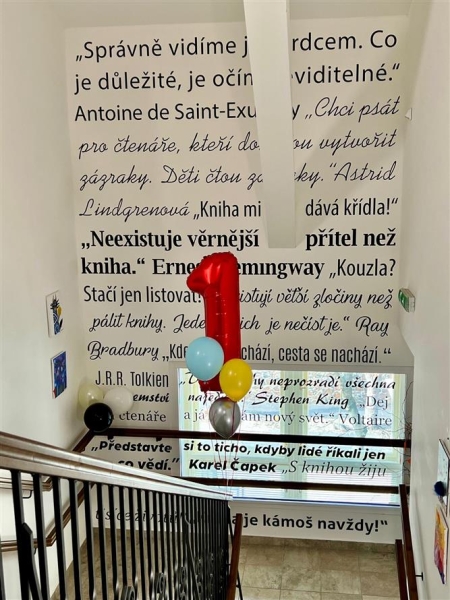 „Správně vidíme j rdcem. Co
je důležité, je očím eviditelné.“
Antoine de Saint-Exu y „Chci psát
pro čtenáře, kteří do ou vytvořit
zázraky. Děti čtou zá ky.“ Astrid
Lindgrenová „Kniha mi dává křídla!“
„Neexistuje věrnější přítel než
kniha.“ Erne emingway „Kouzla?
Stačí jen listovat! istují větší zločiny než
pálit knihy. Jede ich je nečíst je.“ Ray
Bradbury „Kde chází, cesta se nachází.“
J.R.R. Tolkien hy neprozradí všechna
emství naje Stephen King „Dej
čtenáře a já ám nový svět.“ Voltaire
„Představte si to ticho, kdyby lidé říkali jen
co vědí.“ Karel Čapek „S knihou žiju
a je kámoš navždy!“
1